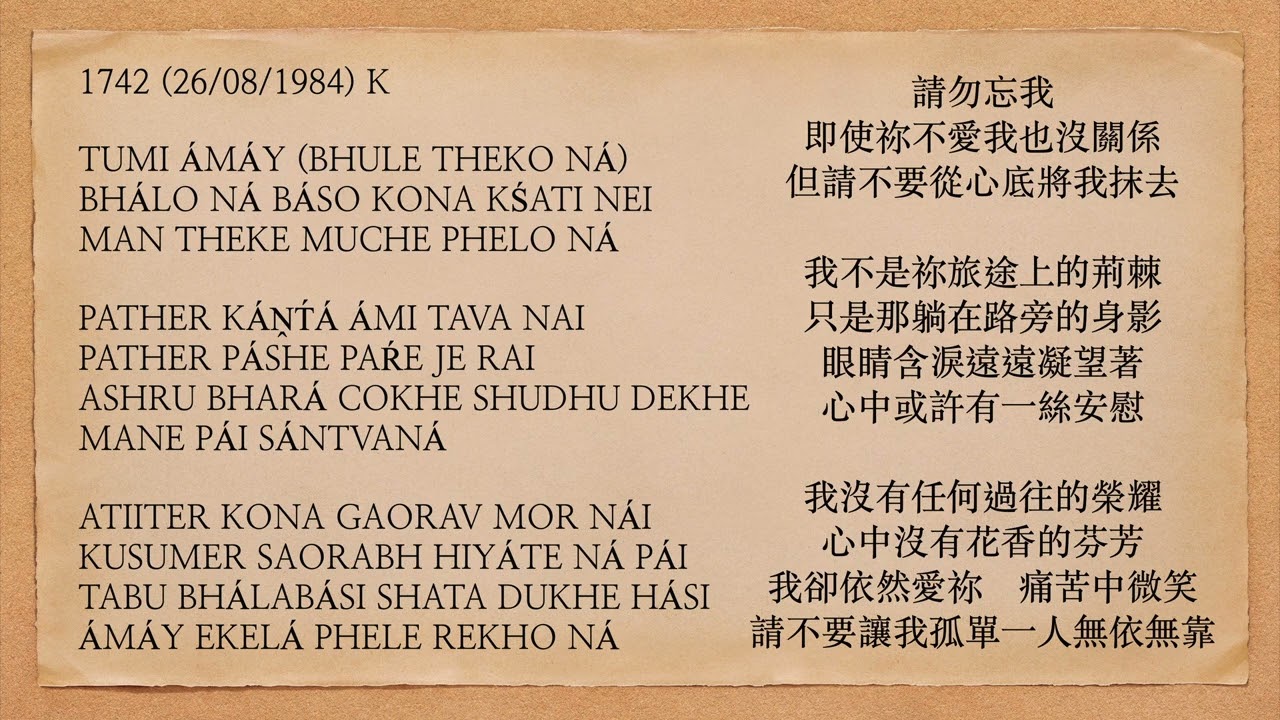 1742 (26/08/1984) K
TUMI ÁMÁY (BHULE THEKO NÁ)
BHÁLO NÁ BÁSO KONA KŚATI NEI
MAN THEKE MUCHE PHELO NÁ
PATHER KÁṊT́Á ÁMI TAVA NAI
PATHER PÁSHE PAŔE JE RAI
ASHRU BHARÁ COKHE SHUDHU DEKHE
MANE PÁI SÁNTVANÁ
ATIITER KONA GAORAV MOR NÁI
KUSUMER SAORABH HIYÁTE NÁ PÁI
TABU BHÁLABÁSI SHATA DUKHE HÁSI
ÁMÁY EKELÁ PHELE REKHO NÁ
請勿忘我
即使祢不愛我也沒關係
但請不要從心底將我抹去
我不是祢旅途上的荊棘
只是那躺在路旁的身影
眼睛含淚遠遠凝望著
心中或許有一絲安慰
我沒有任何過往的榮耀
心中沒有花香的芬芳
我卻依然愛祢　痛苦中微笑
請不要讓我孤單一人無依無靠